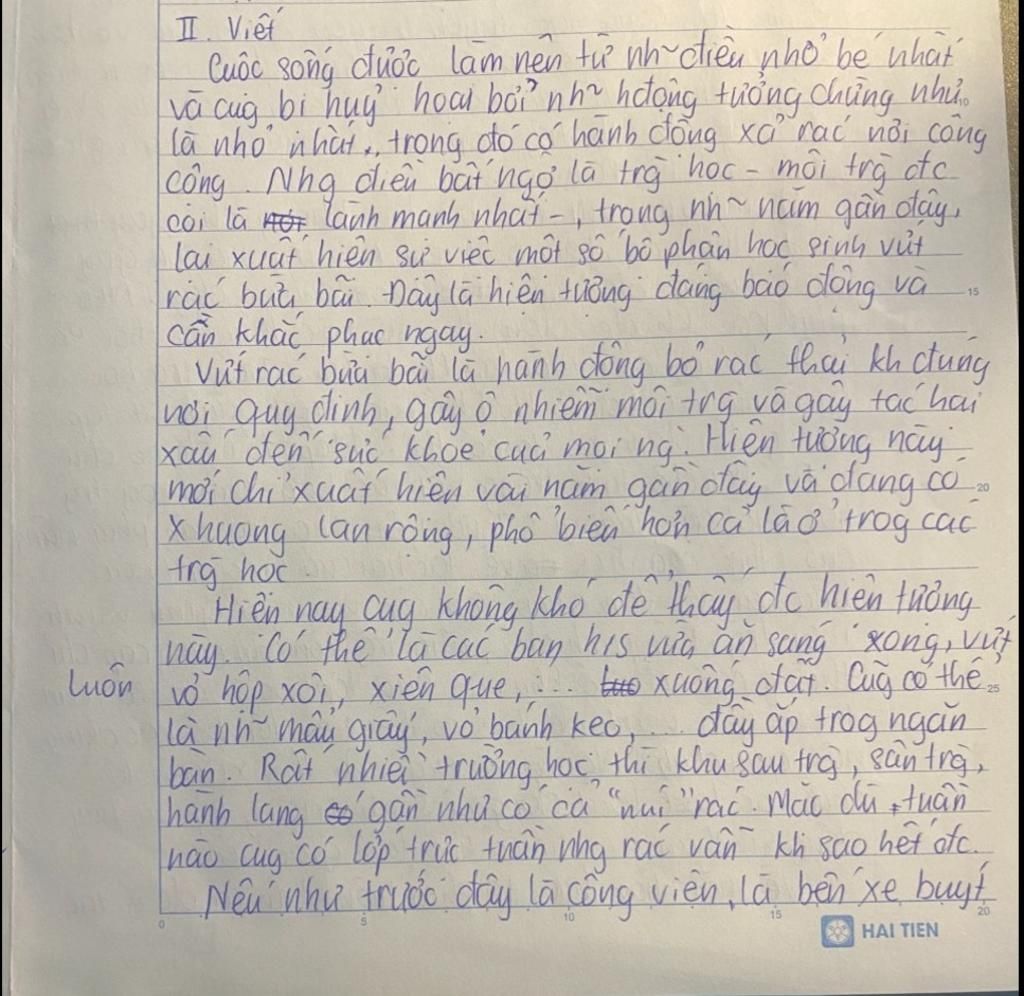 II. Viết
Cuộc sống được làm nên từ nh~ điều nhỏ bé nhất
và cũg bị huỷ hoại bởi nh~ hđộng tưởng chừng như
là nhỏ nhất, trong đó có hành động xả rác nơi công
cộng. Nhg điều bất ngờ là trg học - môi trg đc
coi là lành mạnh nhất -, trong nh~ năm gần đây,
lại xuất hiện sự việc một số bộ phận học sinh vứt
rác bừa bãi. Đây là hiện tượng đáng báo động và
15
cần khắc phục ngay.
Vứt rác bừa bãi là hành động bỏ rác thải kh đúng
nơi quy định, gây ô nhiễm môi trg và gây tác hại
xấu đến sức khoẻ của mọi ng. Hiện tượng này
mới chỉ xuất hiện vài năm gần đây và đang có
20
x hướng lan rộng, phổ biến hơn cả là ở trog các
trg học.
Hiện nay cũg không khó để thấy đc hiện tượng
này. Có thể là các bạn h/s vừa ăn sáng xong, vứt
luôn vỏ hộp xôi, xiên que, ... xuống đất. Cũg có thể
25
là nh~ mẩu giấy, vỏ bánh kẹo, ... đầy ắp trog ngăn
bàn. Rất nhiều trường học thì khu sau trg, sân trg,
hành lang gần như có cả "núi" rác. Mặc dù, tuần
nào cũg có lớp trực tuần nhg rác vẫn kh sao hết đc.
Nếu như trước đây là công viên, là bến xe buýt
0 5 10 15 20
HAI TIEN